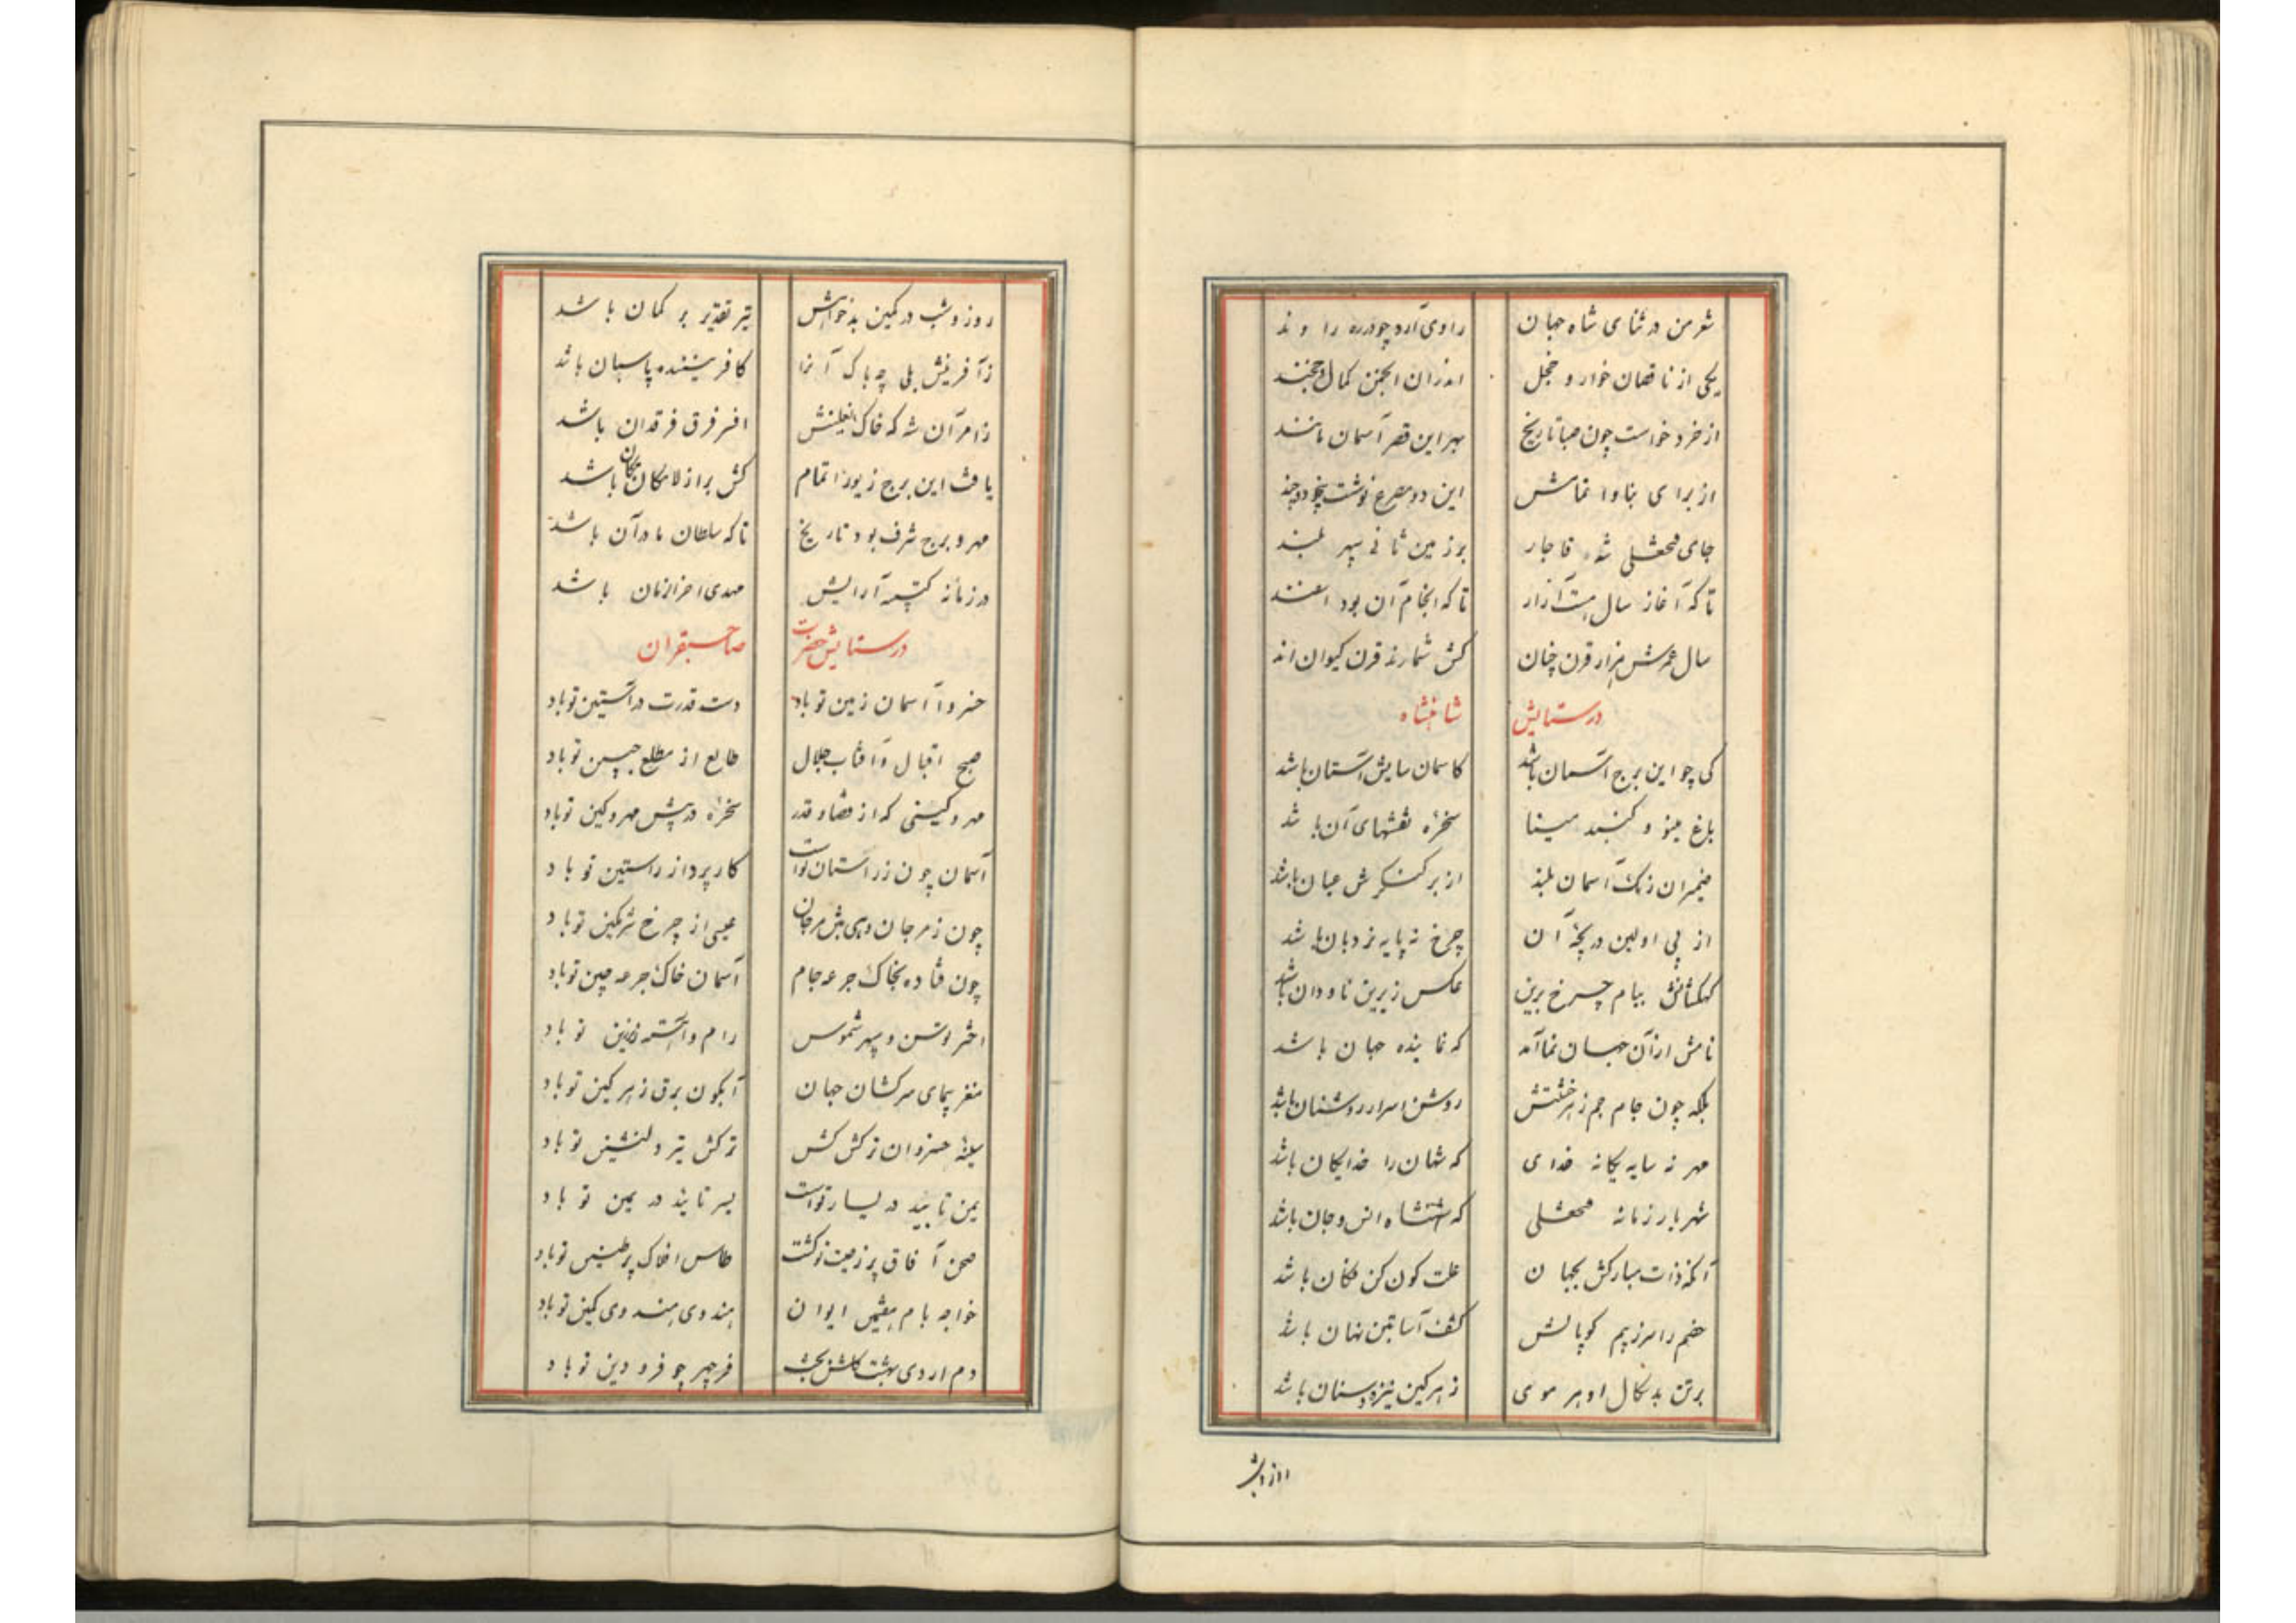 شعر من در ثنای شاه جهان راوی آرد چو در ره را وند
یکی از ناقصان خوار و خجل اندران انجمن کمال خجند
از خرد خواست چون صبا تاریخ بهر این قصر آسمان مانند
از برای بنا و اتمامش این دو مصرع نوشت
جای فتحعلی شه قاجار بر زمین ثانی سپهر بلند
تا که آغاز سال هست آزار تا که انجام آن بود اسفند
سال عمرش هزار قرن چنان کش شمارند قرن کیوان اند
در ستایش شاهنشاه
کی چو این برج آسمان باشد کاسمان سایش آستان باشد
باغ مینو و گنبد مینا سخرهٔ نقشهای آن باشد
ضمیران رنگ آسمان بلند از بر کنگرش عیان باشد
از پی اولین دریچهٔ آن چرخ نه پایه نردبان باشد
کهکشانش ببام چرخ برین عکس زرین ناودان باشد
نامش ار زآن جهان نما آمد که نماینده جهان باشد
بلکه چون جام جم ز هر خشتش روشن اسرار روشنان باشد
مهر نه سایه یگانه خدای که شهان را خدایگان باشد
شهریار زمانه فتحعلی که شهنشاه انس و جان باشد
آنکه ذات مبارکش بجهان علت کون کن فکان باشد
خصم را سر ز بیم کوپالش کشف آسا بتن نهان باشد
بر تن بدسگال او هر موی ز هر کین نیزه و سنان باشد
روز و شب
روز و شب در کمین بدخواهش تیر تقدیر بر کمان باشد
ز آفرینش بلی چه باک آنرا کافریننده پاسبان باشد
زامر آن شه که خاک نعلینش افسر فرق فرقدان باشد
یافت این برج زیور اتمام کش براز لامکان مکان باشد
مهر و برج شرف بود تاریخ تا که سلطان ما در آن باشد
در زمانه کتیبه آرایش مهدی اخرالزمان باشد
در ستایش حضرت صاحبقران
خسروا آسمان زمین تو باد دست قدرت در آستین تو باد
صبح اقبال و آفتاب جلال طالع از مطلع جبین تو باد
مهر و کینی که از قضا و قدر سخره در پیش مهر و کین تو باد
آسمان چون ز راستان تو است کارپرداز راستین تو باد
چون ز مرجان دهی بتن مرجان عیسی از چرخ شرمگین تو باد
چون فتاده بخاک جرعه جام آسمان خاک جرعه چین تو باد
اختر توسن و سپهر شموس رام و آهسته زین تو باد
مغز پیمای سرکشان جهان آبگون برق زهر کین تو باد
سینه خسروان ترکش کش ترکش تیر دلنشین تو باد
یمن تایید در یسار تو است یسر تایید در یمین تو باد
صحن آفاق پر ز صیت تو گشت طاس افلاک پر طنین تو باد
خواجه بام هفتمین ایوان هندوی هندوی کمین تو باد
دم اردی بهشت گلشن بخش فر چهر چو فرودین تو باد